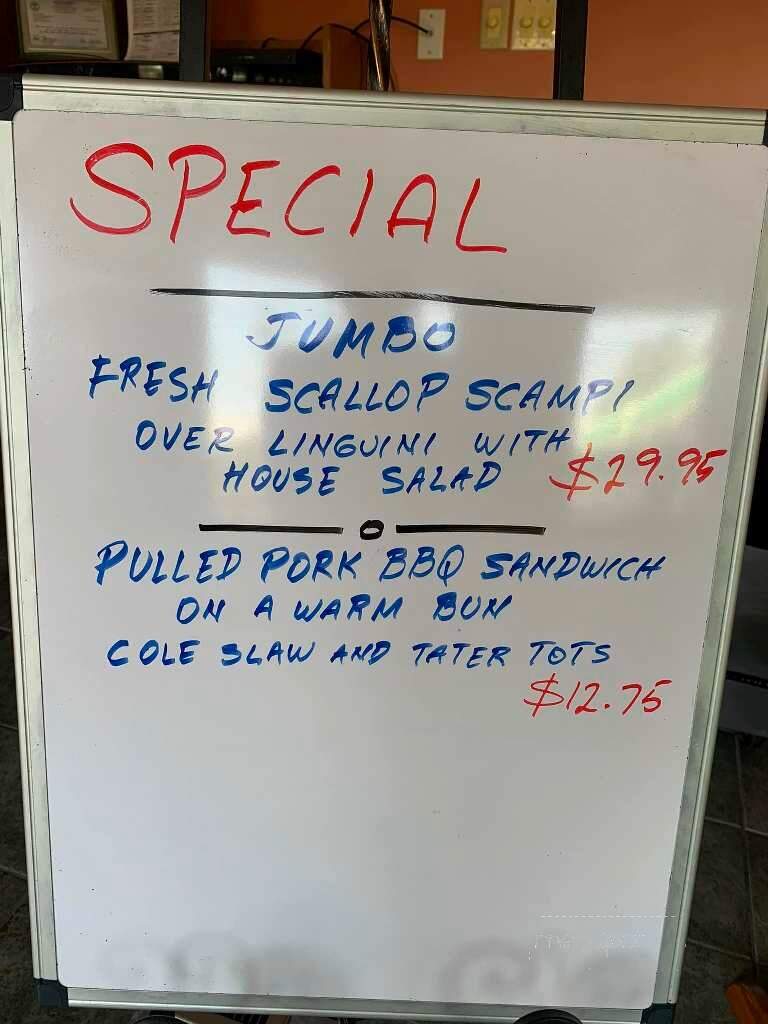 SPECIAL
JUMBO
FRESH SCALLOP SCAMPI
OVER LINGUINI WITH
HOUSE SALAD $29.95
PULLED PORK BBQ SANDWICH
ON A WARM BUN
COLE SLAW AND TATER TOTS
$12.75